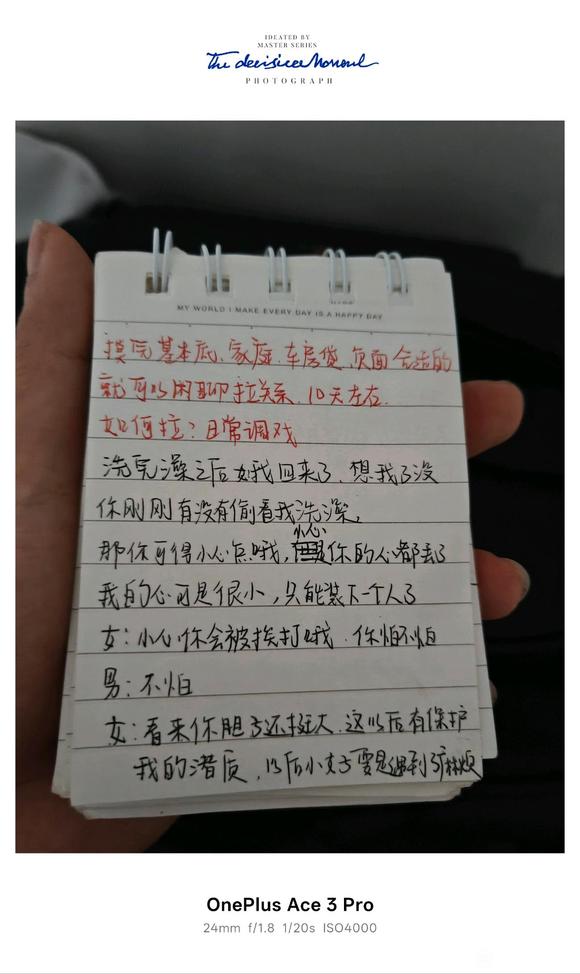 IDEATED BY
MASTER SERIES
The decisive Moment
PHOTOGRAPH
MY WORLD I MAKE EVERY DAY IS A HAPPY DAY
摸完基本底、家庭、车房贷、负面 合适的
就可以闲聊拉关系、10天左右.
如何拉：日常调戏
洗完澡之后 哦我回来了、想我了没
你刚刚有没有偷看我洗澡，
小心
那你可得小心点哦，你的心都丢了
我的心可是很小，只能装下一个人了
女：小心你会被挨打哦．你怕不怕
男：不怕
女：看来你胆子还挺大、这以后有保护
我的潜质，以后小女子要是遇到了麻烦
OnePlus Ace 3 Pro
24mm f/1.8 1/20s ISO4000